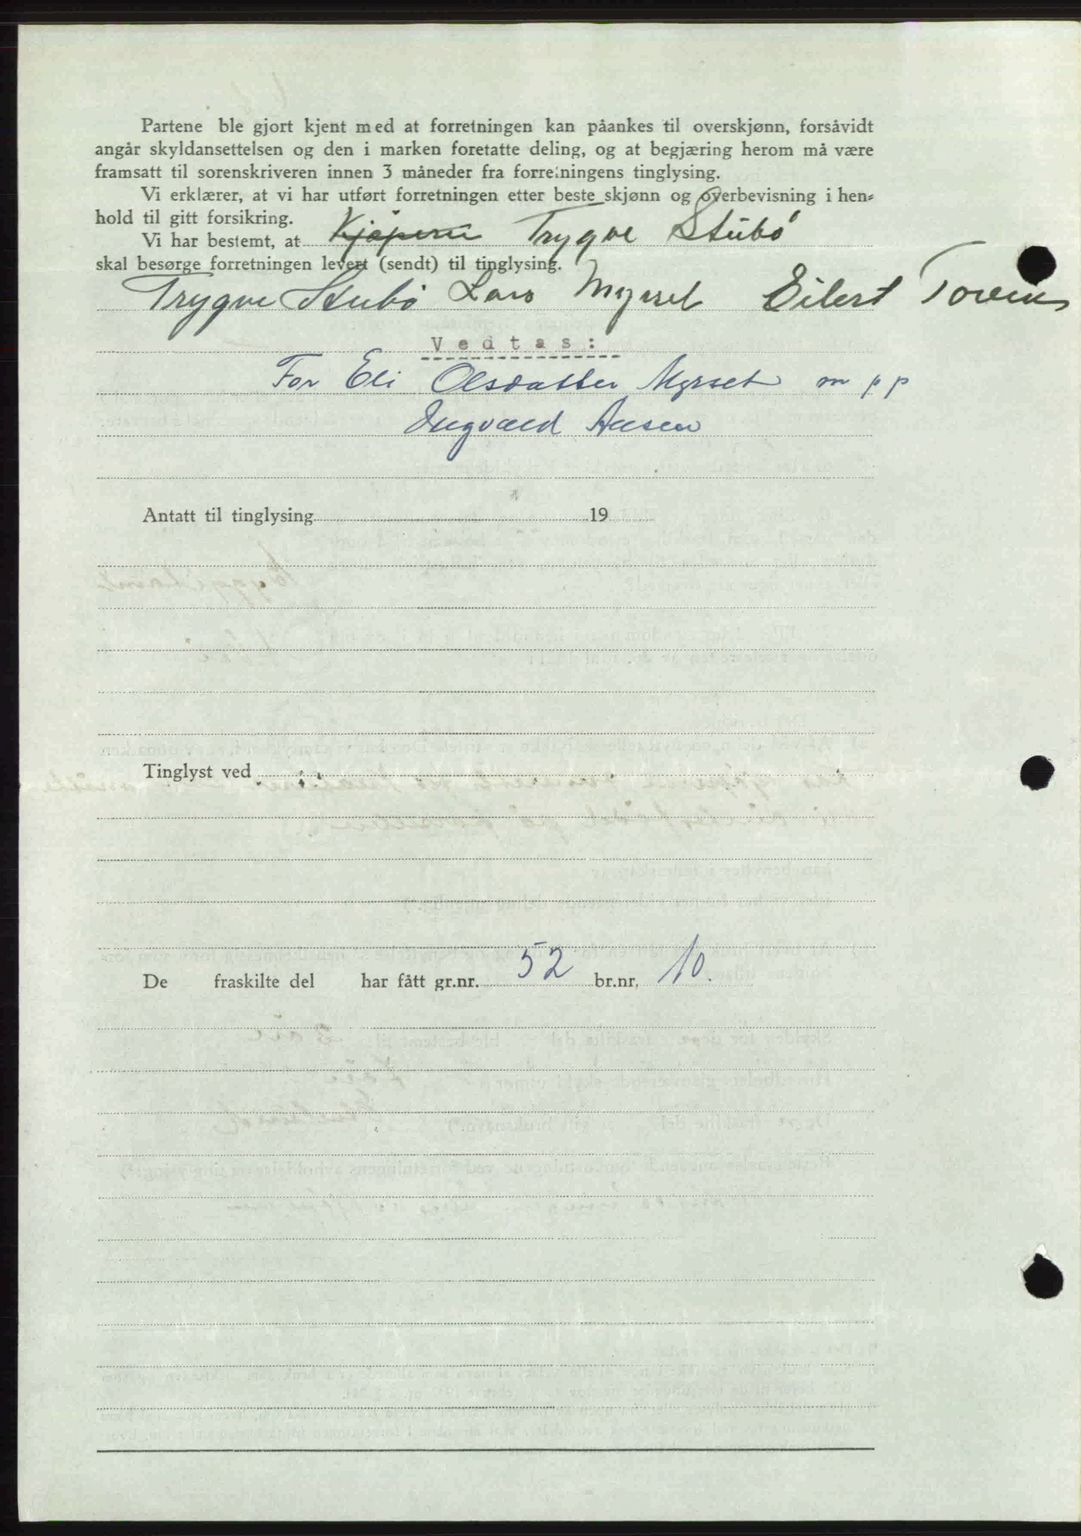 Partene ble gjort kjent med at forretningen kan påankes til overskjønn, forsåvidt
angår skyldansettelsen og den i marken foretatte deling, og at begjæring herom må være
framsatt til sorenskriveren innen 3 måneder fra forretningens tinglysing.
Vi erklærer, at vi har utført forretningen etter beste skjønn og overbevisning i hen-
hold til gitt forsikring.
Vi har bestemt, at Kjøperen Trygve Stubø
skal besørge forretningen levert (sendt) til tinglysing.
Trygve Stubø Lars Myrset Eilert
Vedtas:
For Eli Olsdatter Myrset m p p
Ingvald Aasen
Antatt til tinglysing 19
Tinglyst ved
De fraskilte del har fått gr.nr. 52 br.nr. 10.